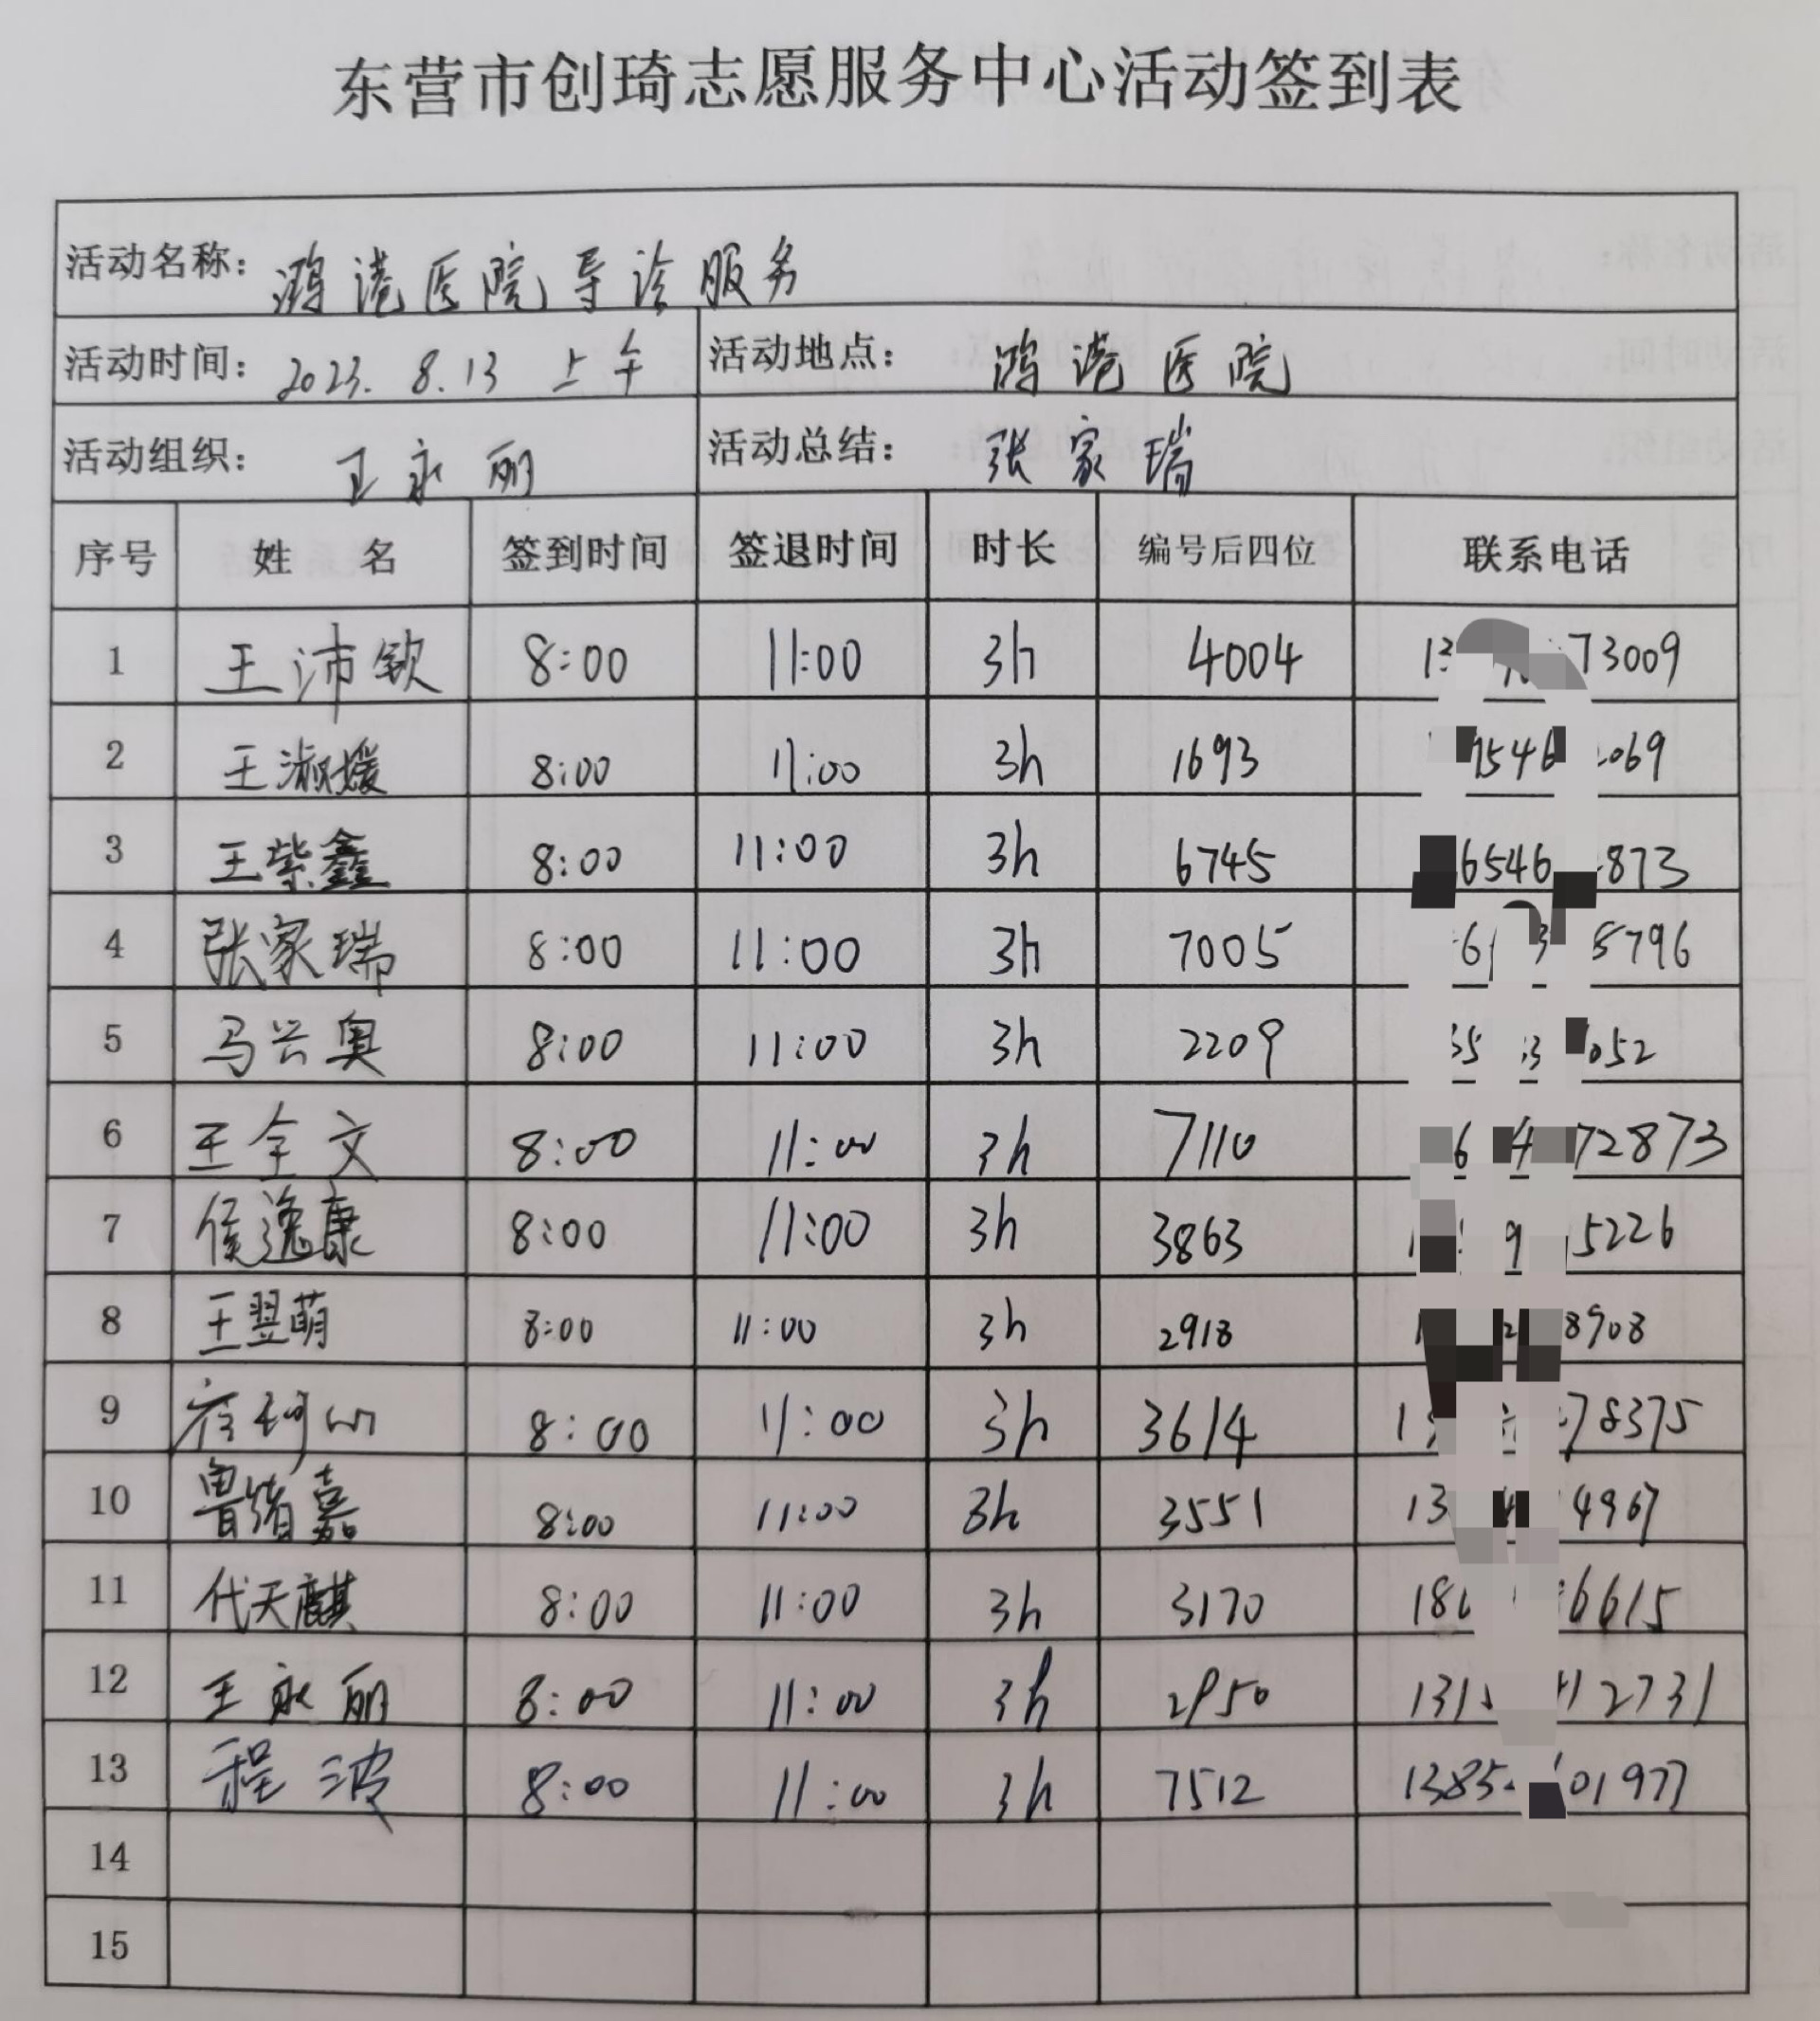 东营市创琦志愿服务中心活动签到表
活动名称: 鸿港医院导诊服务
活动时间: 2023. 8.13 上午 活动地点: 鸿港医院
活动组织: 王永丽 活动总结: 张家瑞
序号 姓名 签到时间 签退时间 时长 编号后四位 联系电话
1 王沛钦 8:00 11:00 3h 4004 73009
2 王淑媛 8:00 11:00 3h 1693 069
3 王紫鑫 8:00 11:00 3h 6745 6546 873
4 张家瑞 8:00 11:00 3h 7005 5796
5 马兴奥 8:00 11:00 3h 2209 052
6 王全文 8:00 11:00 3h 7110 72873
7 侯逸康 8:00 11:00 3h 3863 5226
8 王翌萌 8:00 11:00 3h 2918 8908
9 8:00 11:00 3h 3614 78375
10 鲁绪嘉 8:00 11:00 3h 3551 13 4967
11 代天麒 8:00 11:00 3h 3170 18 6615
12 王永丽 8:00 11:00 3h 2950 131 12731
13 程波 8:00 11:00 3h 7512 1385 01977
14
15